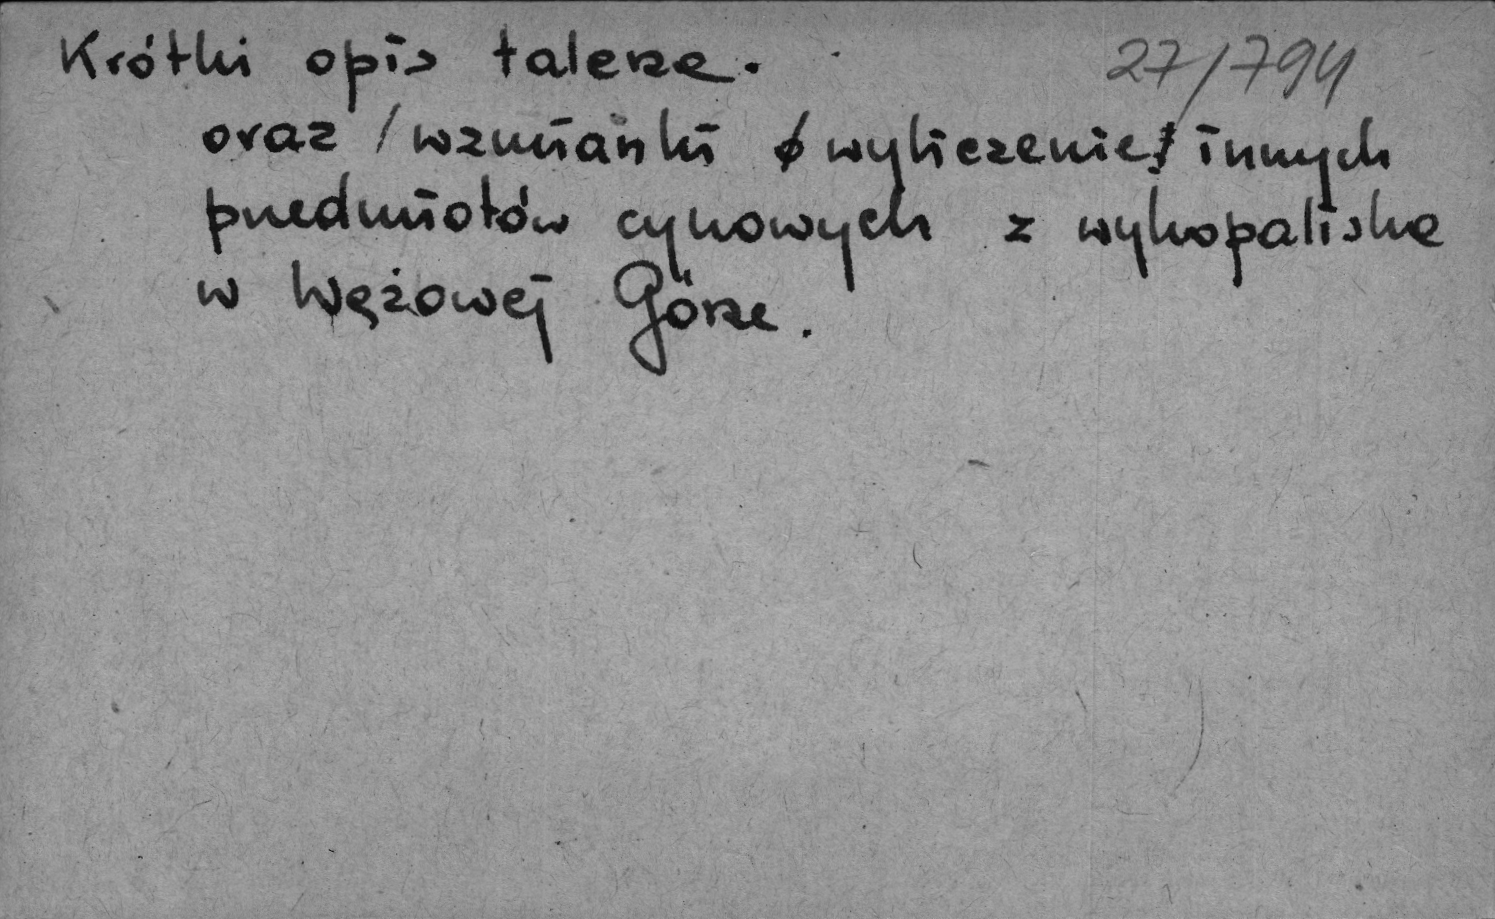 Krótki opis talerza. 27/794
oraz /wzmianki /wyliczenie/ innych
przedmiotów cynowych z wykopaliska
w Wężowej Górze.